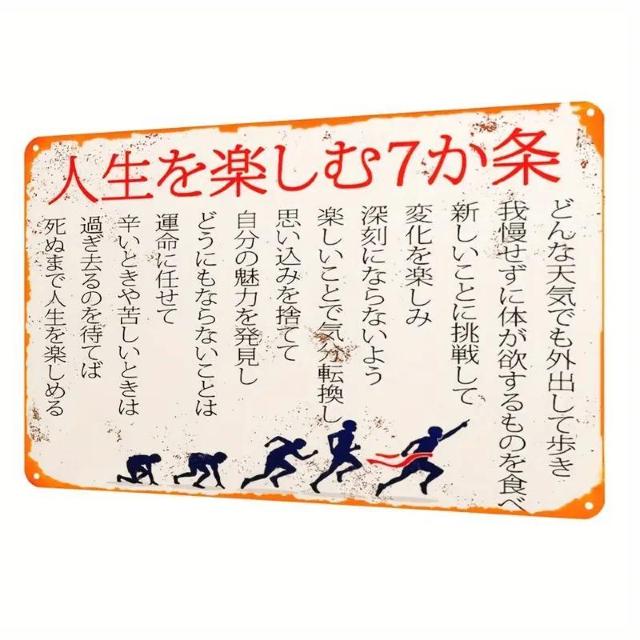 人生を楽しむ7か条
どんな天気でも外出して歩き
我慢せずに体が欲するものを食べ
新しいことに挑戦して
変化を楽しみ
深刻にならないよう
楽しいことで気分転換し
思い込みを捨てて
自分の魅力を発見し
どうにもならないことは
運命に任せて
辛いときや苦しいときは
過ぎ去るのを待てば
死ぬまで人生を楽しめる